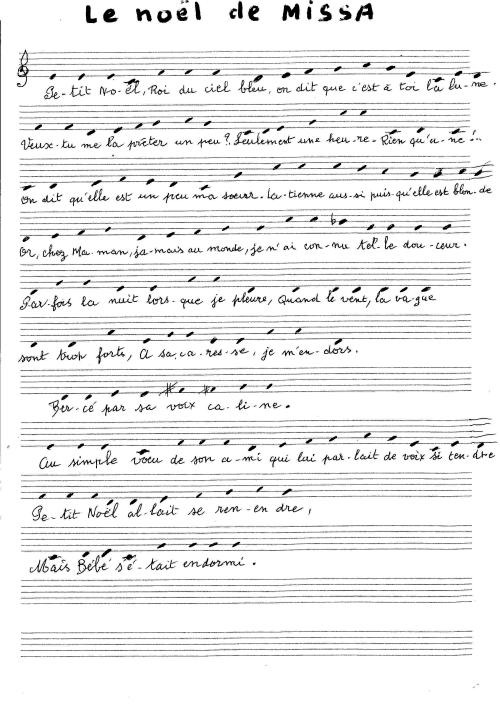 Le noël de MISSA
Pe-tit No-ël, Roi du ciel bleu, on dit que c'est à toi la lu-ne.
Veux-tu me la prêter un peu? Seulement une heu-re. Rien qu'u-ne!..
On dit qu'elle est un peu ma soeur. La tienne aus-si puis-qu'elle est blon-de
Or, chez Ma-man, ja-mais au monde, je n'ai con-nu tel-le dou-ceur.
Par-fois la nuit lors-que je pleure, Quand le vent, la va-gue
sont trop forts, A sa ca-res-se, je m'en-dors.
Ber-cé par sa voix ca-li-ne.
Au simple voeu de son a-mi qui lui par-lait de voix si ten-dre
Pe-tit Noël al-lait se ren-en dre,
Mais Bébé s'é-tait endormi.